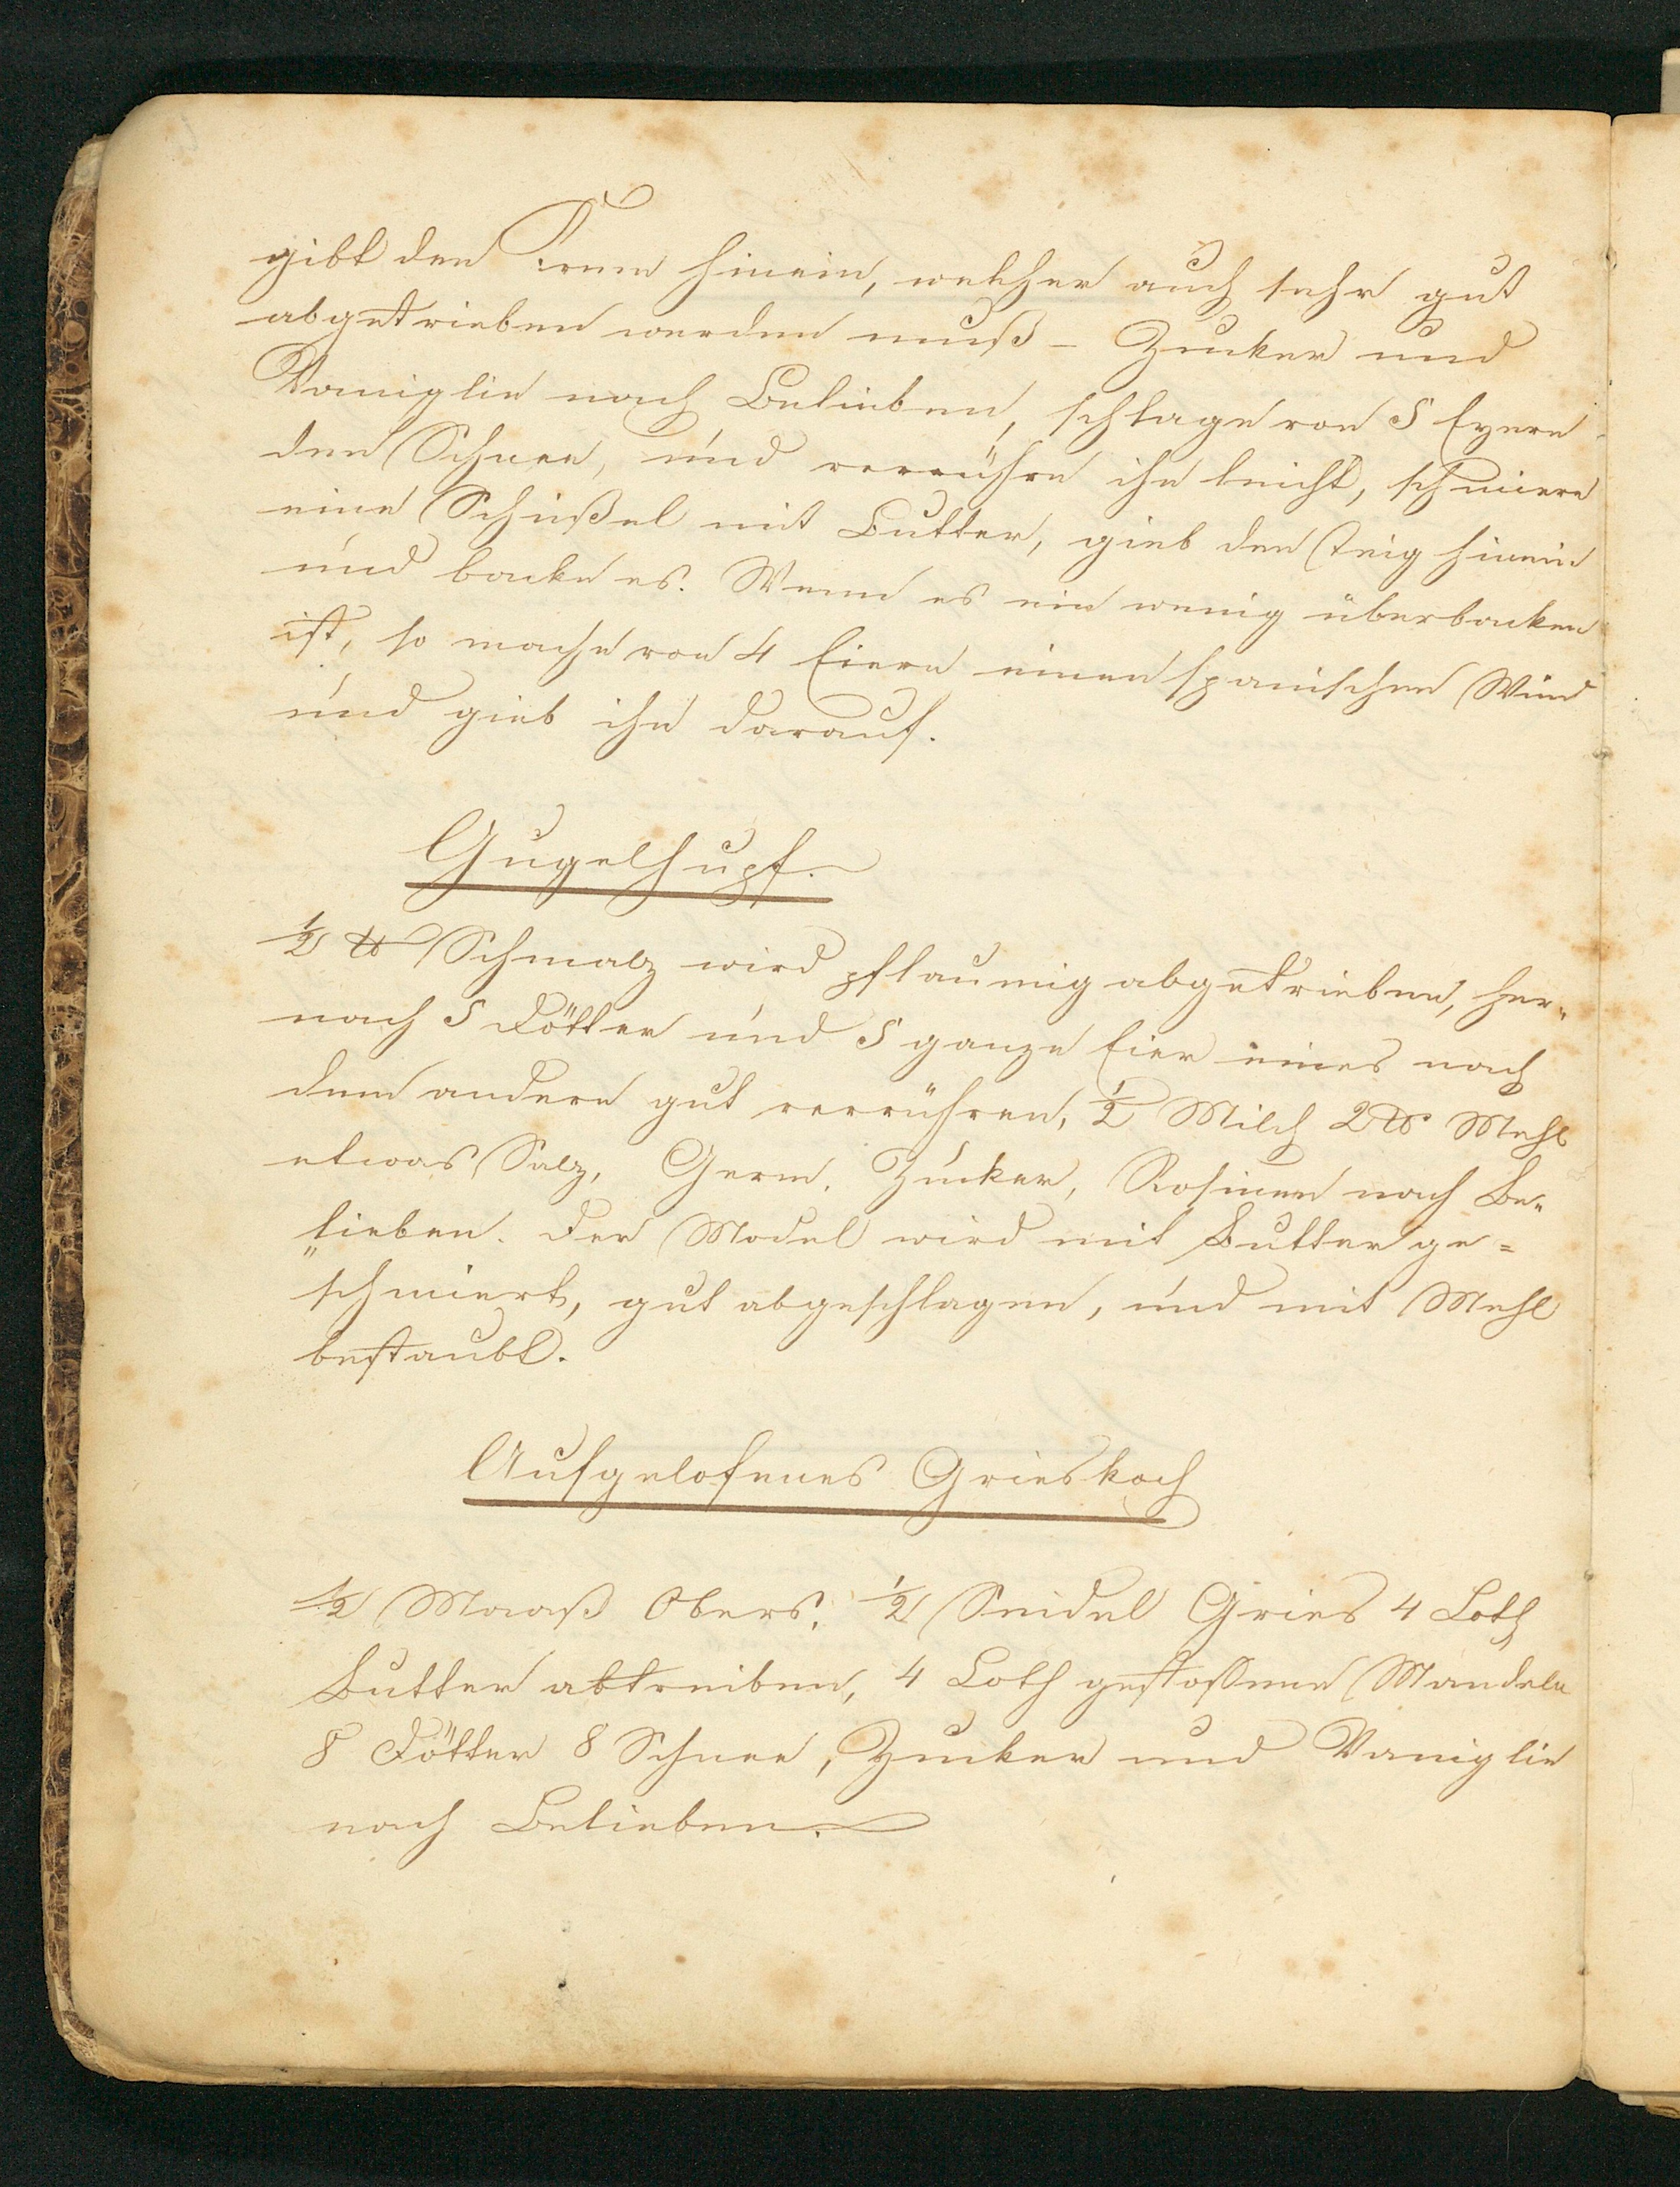 gibt den Crem hinein, welcher auch sehr gut
abgetrieben werden muß – Zucker und
Vaniglie nach Belieben, schlage von 5 Eyern
den Schnee, und verrühre ihn leicht, schmiere
eine Schüßel mit Butter, gieb den Teig hinein
und backe es. Wenn es ein wenig überbacken
ist, so mache von 4 Eiern einen spanischen Wind
und gieb ihn darauf.
Gugelhupf.
½ ℔ Schmalz wird pflaumig abgetrieben, her„
nach 5 Dötter und 5 ganze Eier eines nach
dem andern gut verrühren, ½ Milch 2 ℔ Mehl
etwas Salz, Germ, Zucker, Rosinen nach Be„
„lieben. Der Model wird mit Butter ge=
schmiert, gut abgeschlagen, und mit Mehl
bestaubt.
Aufgelofenes Grieskoch
½ Maaß Obers, ½ Seidel Gries 4 Loth
Butter abtreiben, 4 Loth gestossene Mandeln
8 Dötter 8 Schnee, Zucker und Vaniglie
nach Belieben.